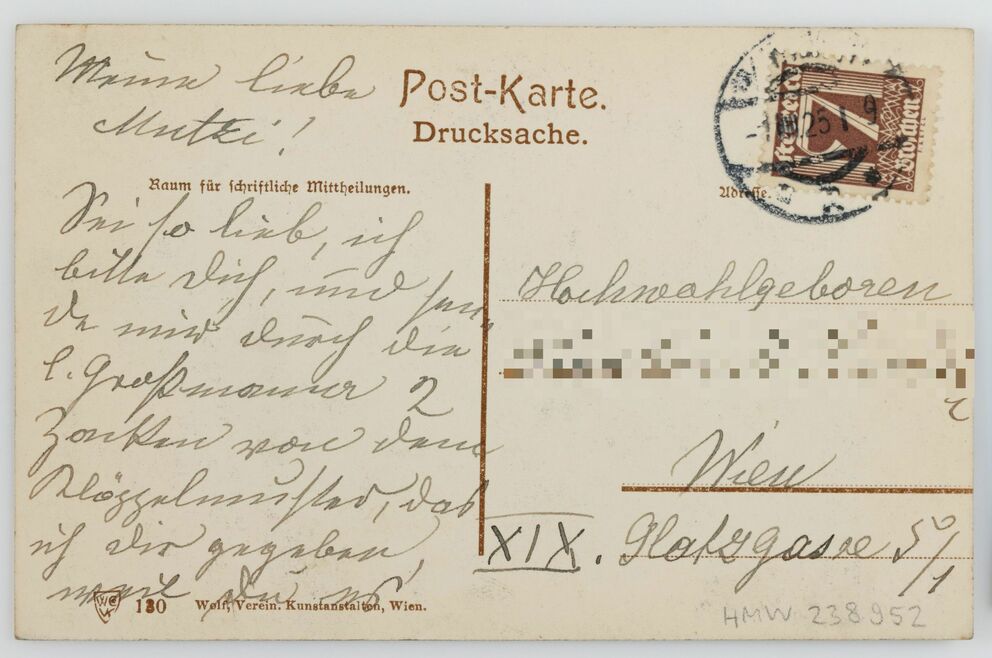 Meine liebe
Mutzi!
Post-Karte.
Drucksache.
Raum für schriftliche Mittheilungen.
Adresse.
-1.VIII.25 I 9
7
Groschen
Sei so lieb, ich
bitte Dich, und sen,
de mir durch die
l. Großmama 2
Zacken von dem
Klöppelmuster, das
ich dir gegeben,
weil Du es
Hochwohlgeboren
Wien
XIX. Glatzgasse 5/1
130 Wolf, Verein. Kunstanstalten, Wien.
HMW 238952